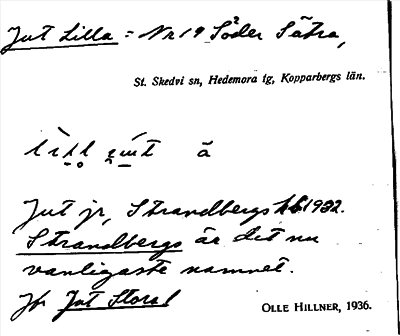 Jut Lilla = Nr 19 Söder Sätra,
St. Skedvi sn, Hedemora tg, Kopparbergs län.
Jut jr, Strandbergs hb 1932.
Strandbergs är det nu
vanligaste namnet.
Jfr Jut Stora!
OLLE HILLNER, 1936.